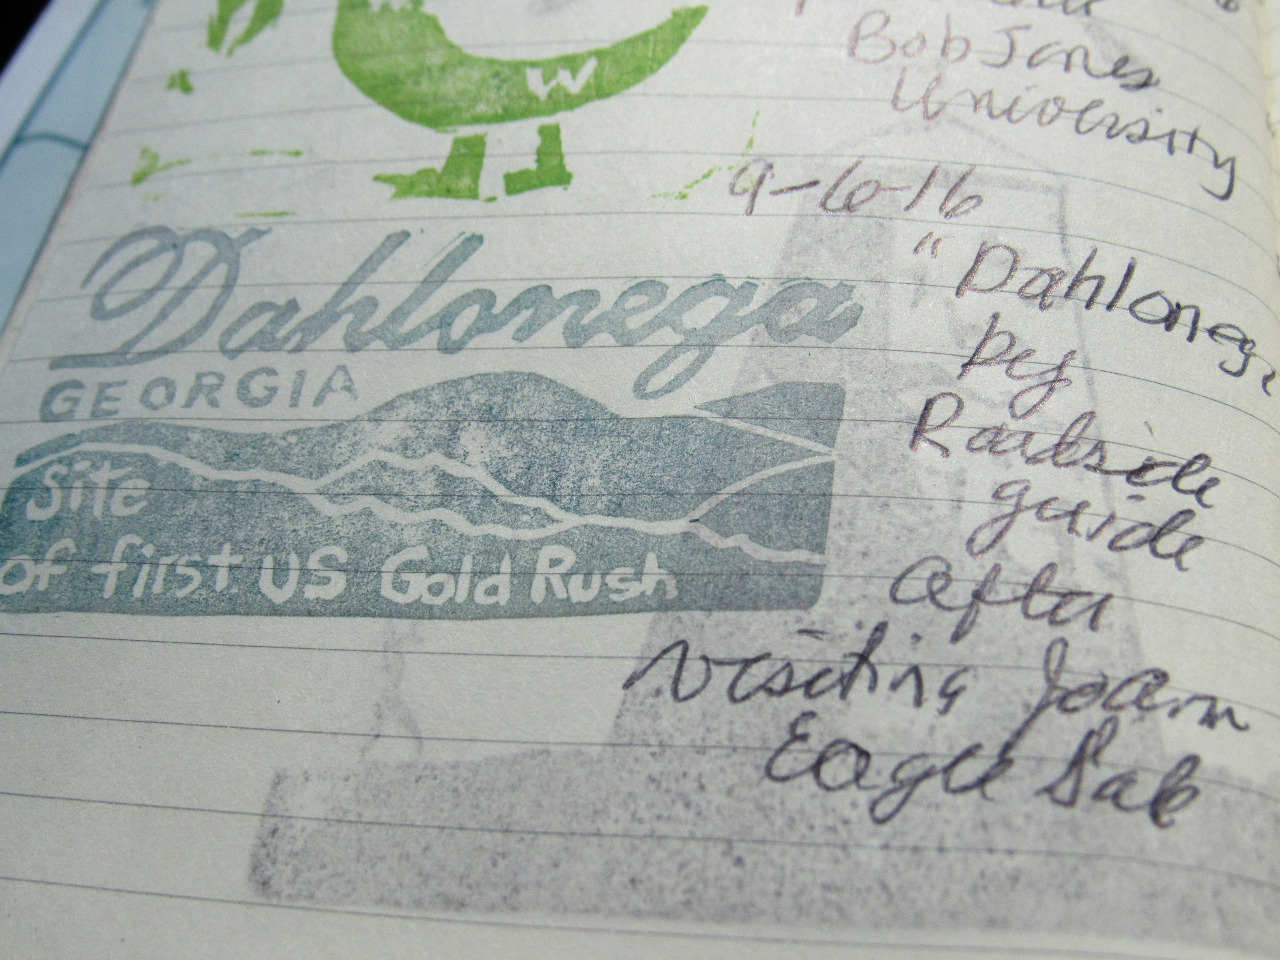 W
Bob Jones
University
9-6-16
Dahlonega
GEORGIA
Site
of first US Gold Rush
"Dahlonega
by
Roadside
guide
after
visiting Joann
Eagle